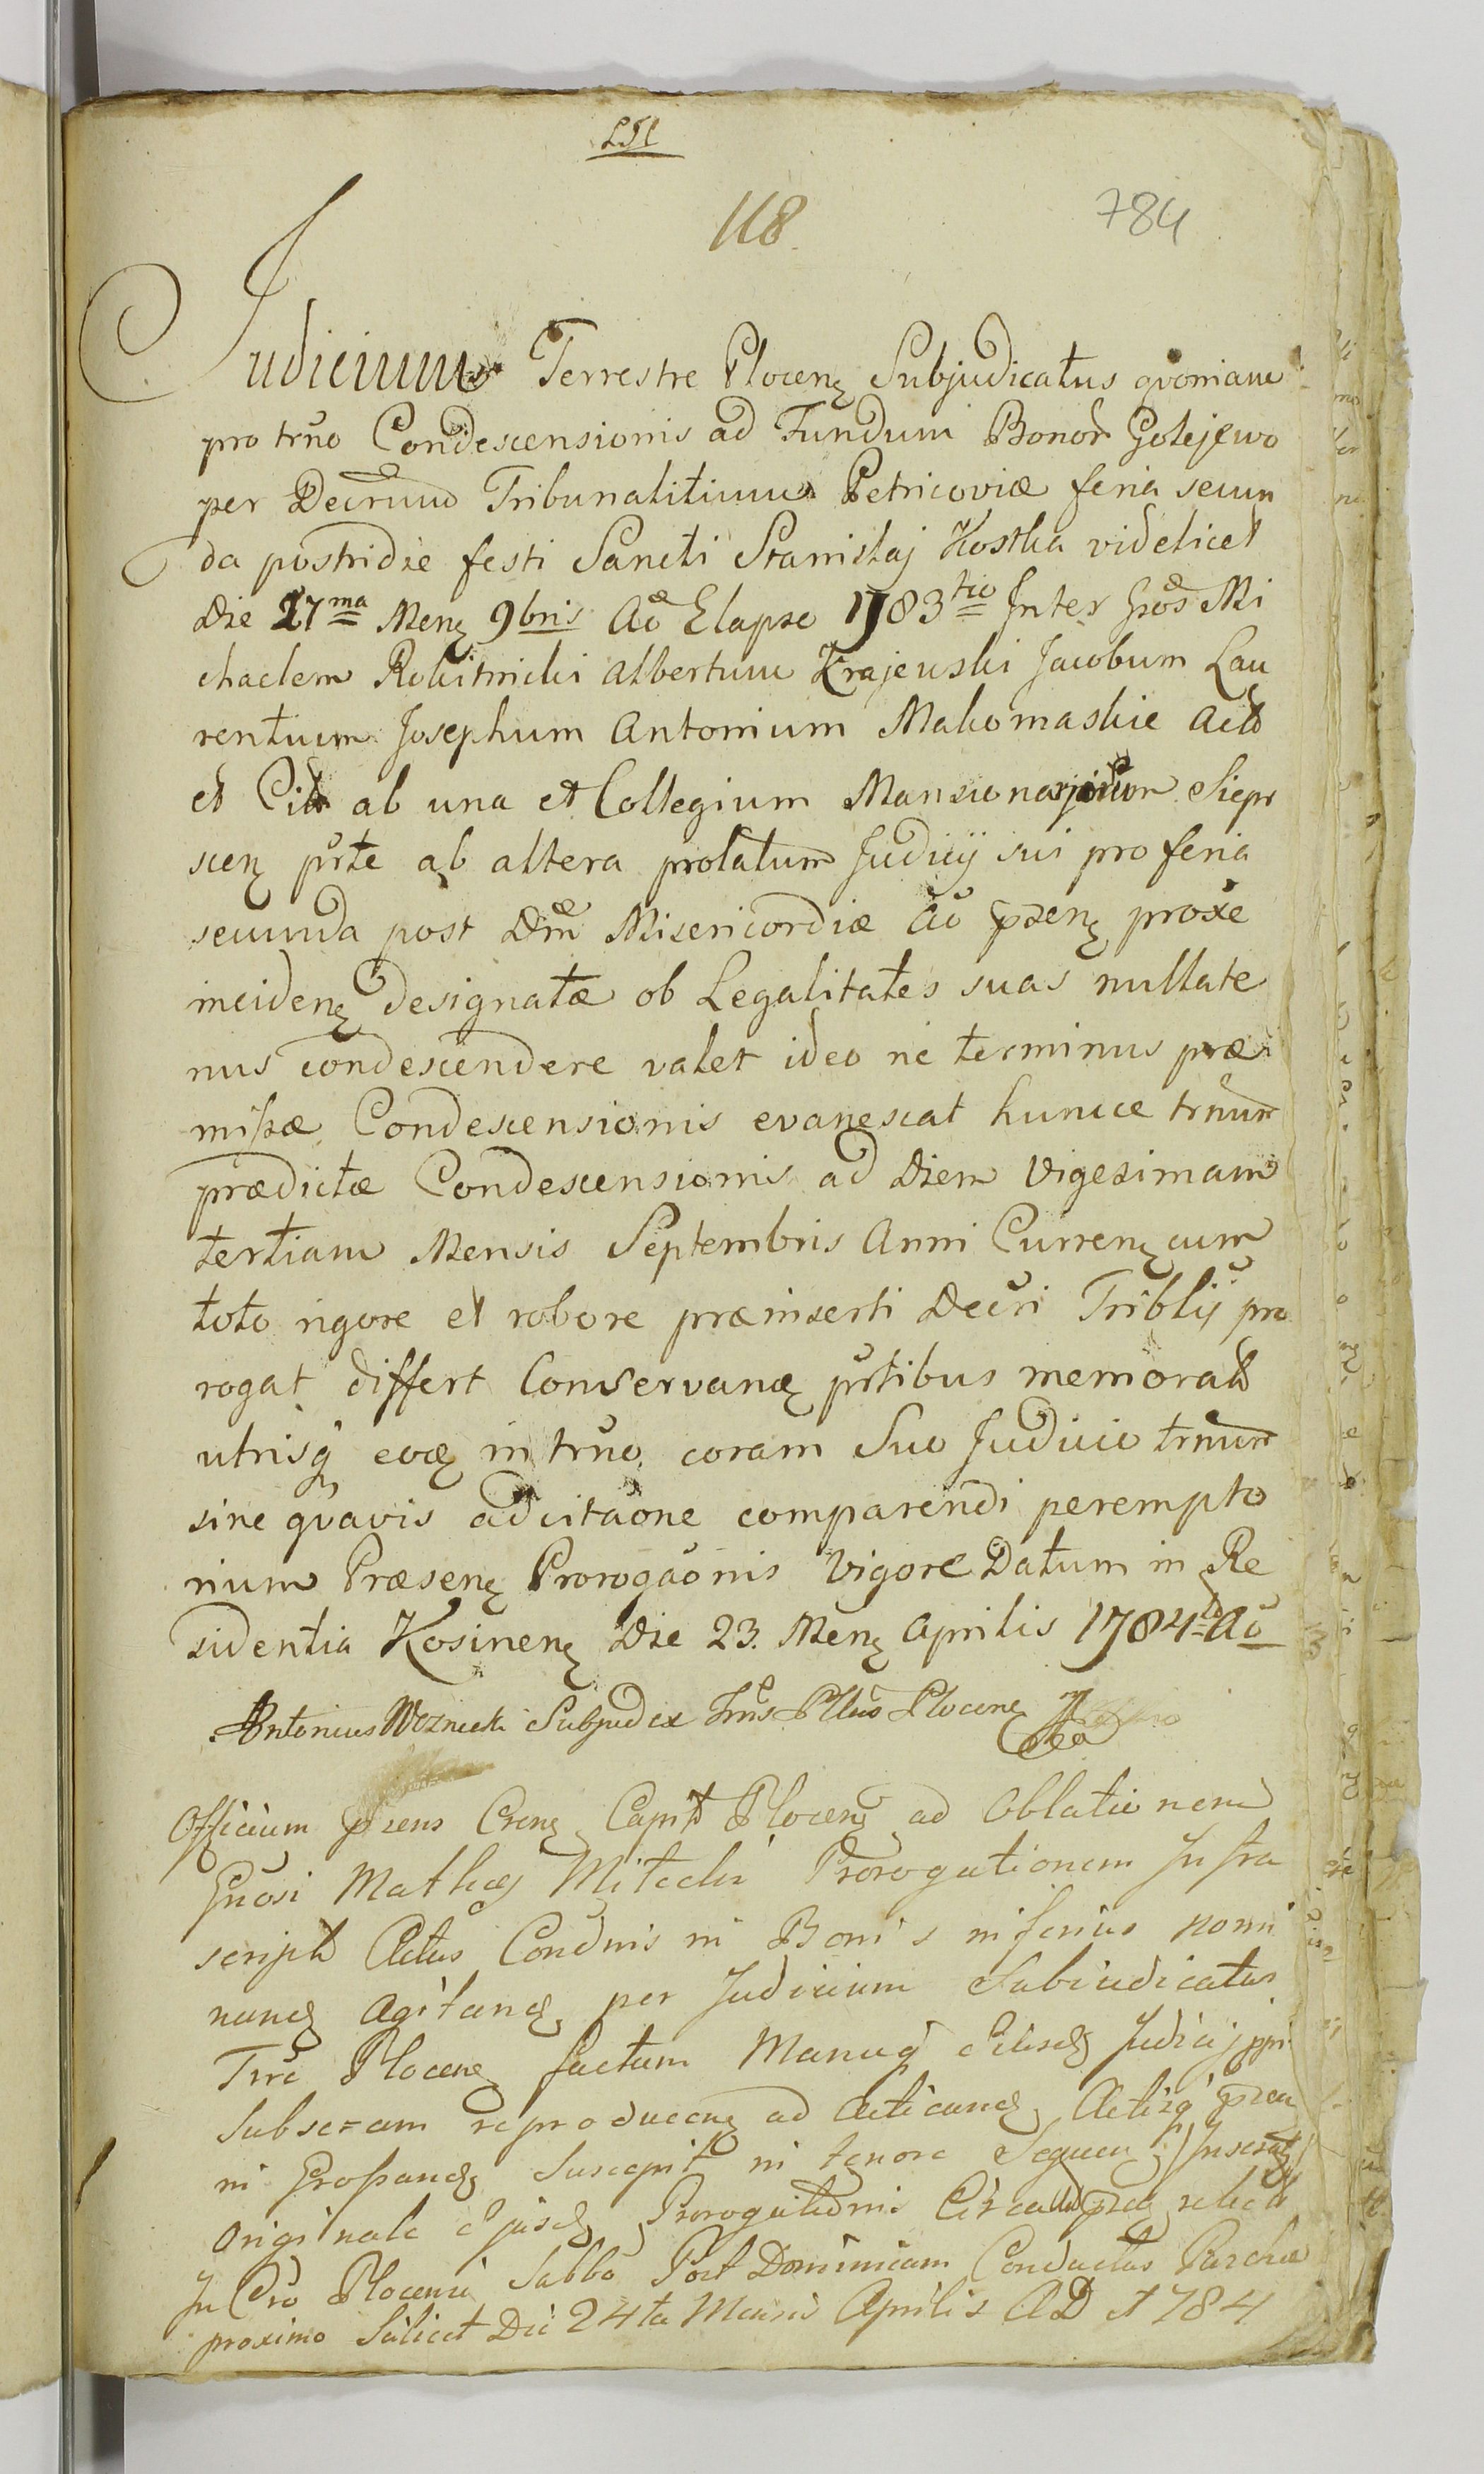 118
784
Judicium Terrestre Plocen Subjudicatus qvoniam
pro trño Condescensionis ad Fundum Bonor Golejewo
per Decrtum Tribunalitium Petricoviæ feria secun
da postridie festi Sancti Stanislaj Kostka videlicet
Die 17ma Men 9bris Aõ Elapso 1783tio Inter Gños Mi
chaelem Rokitnicki Albertum Krajewski Jacobum Lau
rentium Josephum Antonium Makomaskie Act
et Cit ab una et Collegium Mansionariorum Siepr
scen prte ab altera prolatum Judicij sui pro feria
secunda post Dm̃ Misericordiæ Aõ præsen proxe
inciden designatæ ob Legalitates suas nullate
nus condescendere valet ideo ne terminus præ
missæ Condescensionis evanescat huncce trnum
prædictæ Condescensionis ad Diem Vigesimam
tertiam Mensis Septembris Anni Curren cum
toto rigore et robore præinserti Decri Triblij pro
rogat differt Conservan prtibus memorat
utrisq eoq in trño coram Suo Judicio trnum
sine qvavis adcitaõne comparendi perempto
rium Præsen Prorogaõnis Vigore Datum in Re
sidentia Kosinen Die 23. Men Aprilis 1784to Aõ
Antonius Woznicki Subjudex Trris Pllus Plocen
Officium præsens Cren Capit Plocen ad Oblationem
Gñosi Mathæj Miteckı Prorogationem Infra
script Actus Condnis in Bonis inferius nomi
nand Agitand per Judicium Subiudicatus
Trre Plocen factum Manuq Eiusd Judicij ppri
Subscram reproducen ad Acticand Actisq præn
in Grossand Suscepit in tenore Sequen Inserat
Originale Ejusd Prorogationis Circa relict
In Crõ Plocensi Sabbo Post Dominicam Conductus Paschæ
proximo Scilicet Die 24ta Mensis Aprilis AD 1784